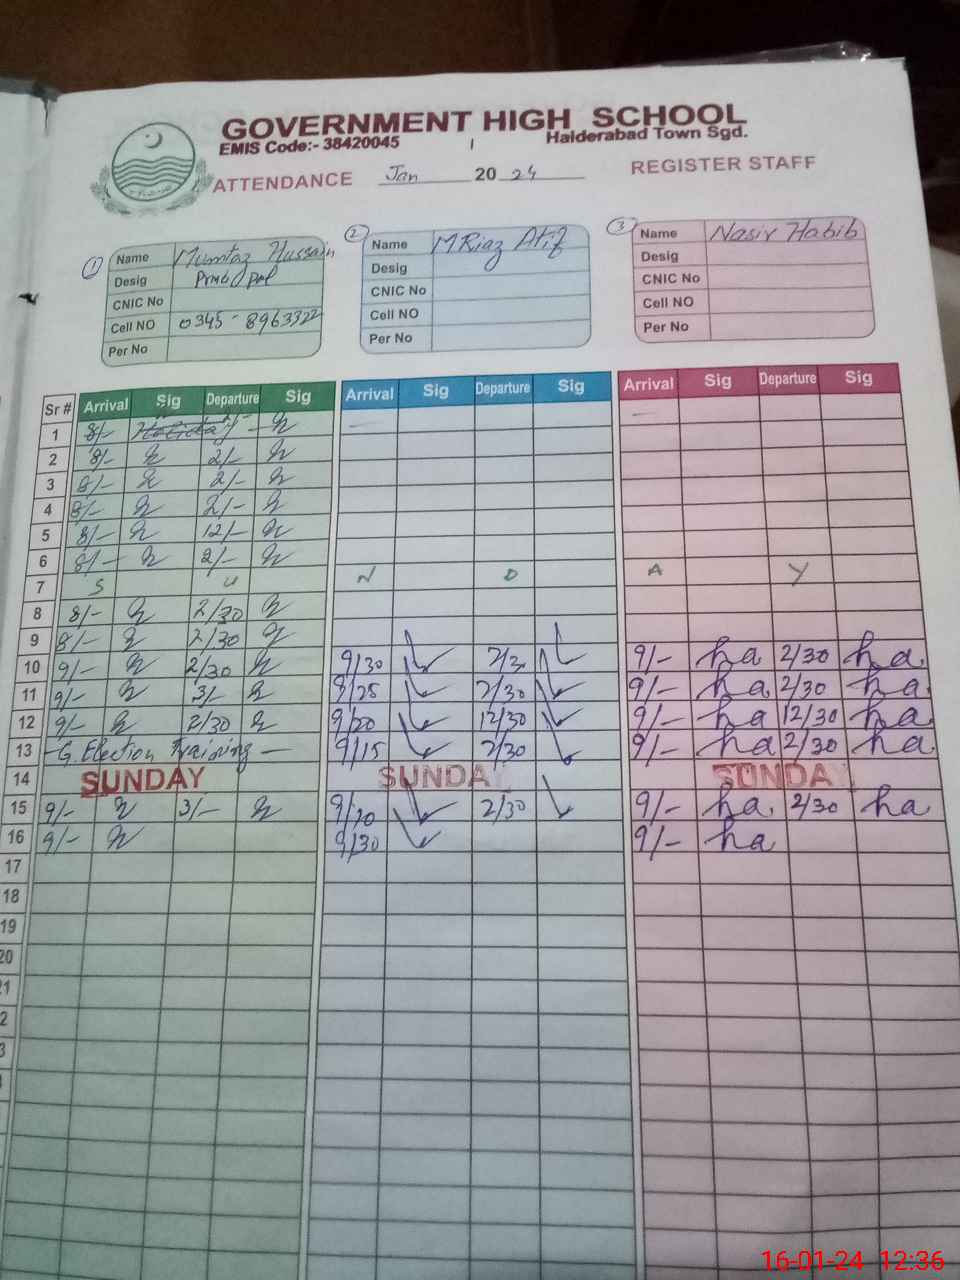 GOVERNMENT HIGH SCHOOL
EMIS Code:- 38420045 Haiderabad Town Sgd.
ATTENDANCE Jan 20 24 REGISTER STAFF
1 Name Mumtaz Hussain
Desig
CNIC No
Cell NO 0345-8963322
Per No
2 Name M Riaz Atif
Desig
CNIC No
Cell NO
Per No
3 Name Nasir Habib
Desig
CNIC No
Cell NO
Per No
Sr # Arrival Sig Departure Sig Arrival Sig Departure Sig Arrival Sig Departure Sig
1 8/- Holiday
2 8/- 2/-
3 8/- 2/-
4 8/- 2/-
5 8/- 12/-
6 8/- 2/-
7 S U N D A Y
8 8/- 2/30
9 8/- 2/30
10 9/- 2/30 9/30 9/- ha 2/30 ha
11 9/- 3/- 9/25 2/30 9/- ha 2/30 ha
12 9/- 2/30 9/20 12/30 9/- ha 12/30 ha
13 - G. Election Training - 9/15 2/30 9/- ha 2/30 ha
14 SUNDAY SUNDAY SUNDAY
15 9/- 3/- 2/30 9/- ha 2/30 ha
16 9/- 9/30 9/- ha
17
18
19
20
21
2
3
16-01-24 12:36